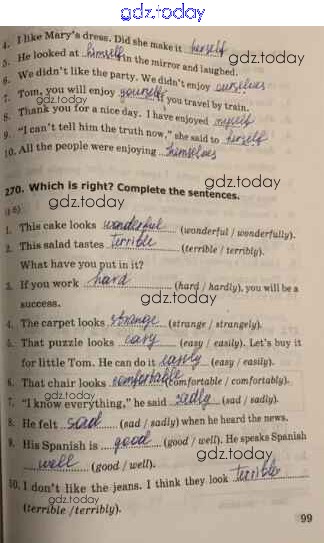 gdz.today
4. I like Mary's dress. Did she make it herself
5. He looked at himself in the mirror and laughed.
gdz.today
6. We didn't like the party. We didn't enjoy ourselves
7. Tom, you will enjoy yourself if you travel by train.
gdz.today
8. Thank you for a nice day. I have enjoyed myself
9. "I can't tell him the truth now," she said to herself
gdz.today
10. All the people were enjoying themselves
gdz.today
270. Which is right? Complete the sentences.
gdz.today
1. This cake looks wonderful (wonderful / wonderfully).
2. This salad tastes terrible (terrible / terribly).
gdz.today
What have you put in it?
gdz.today
3. If you work hard (hard / hardly), you will be a
success.
gdz.today
4. The carpet looks strange (strange / strangely).
5. That puzzle looks easy (easy / easily). Let's buy it
gdz.today
for little Tom. He can do it easily (easy / easily).
6. That chair looks comfortable (comfortable / comfortably).
gdz.today
7. "I know everything," he said sadly (sad / sadly).
8. He felt sad (sad / sadly) when he heard the news.
gdz.today
9. His Spanish is good (good / well). He speaks Spanish
gdz.today
well (good / well).
10. I don't like the jeans. I think they look terrible
gdz.today
(terrible / terribly).
99
gdz.today